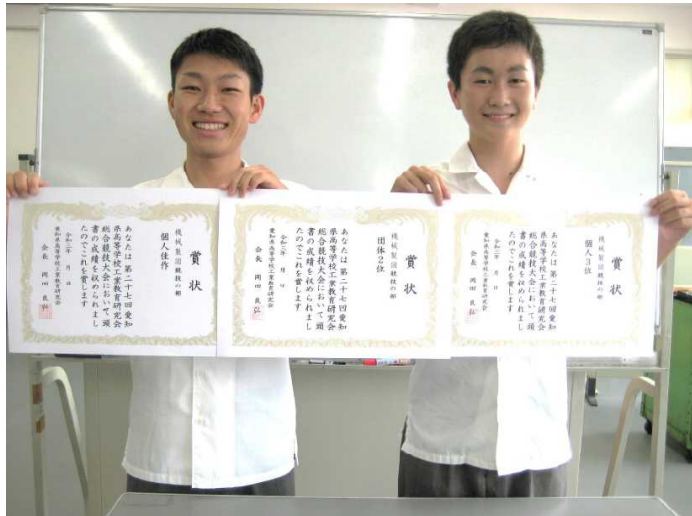 賞状
機械製図競技の部
個人佳作
あなたは第二十七回愛知
県高等学校工業教育研究会
総合競技大会において頭
書の成績を収められまし
たのでこれを賞します
令和二年　月　日
愛知県高等学校工業教育研究会
会長　岡田　良弘
賞状
機械製図競技の部
団体2位
あなたは第二十七回愛知
県高等学校工業教育研究会
総合競技大会において頭
書の成績を収められまし
たのでこれを賞します
令和二年　月　日
愛知県高等学校工業教育研究会
会長　岡田　良弘
賞状
機械製図競技の部
個人3位
あなたは第二十七回愛知
県高等学校工業教育研究会
総合競技大会において頭
書の成績を収められまし
たのでこれを賞します
令和二年　月　日
愛知県高等学校工業教育研究会
会長　岡田　良弘